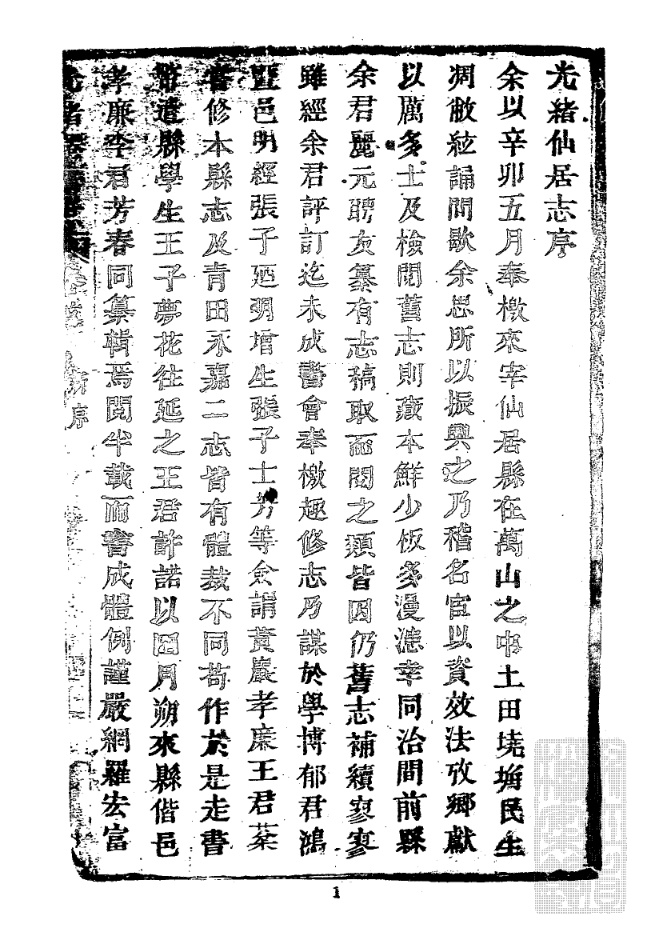 光緒仙居志序
余以辛卯五月奉檄來宰仙居縣在萬山之中土田墝塉民生
凋敝絃誦間歇余思所以振興之乃稽名宦以資效法攷鄉獻
以厲多士及檢閱舊志則藏本鮮少板多漫漶幸同治間前縣
余君麗元聘友纂有志稿取而閱之類皆因仍舊志補續寥寥
雖經余君評訂迄未成書會奉檄趣修志乃謀於學博郁君鴻
暨邑明經張子廼明增生張子士芳等僉謂黃巖孝廉王君棻
嘗修本縣志及青田永嘉二志皆有體裁不同苟作於是走書
幣遣縣學生王子夢花往延之王君許諾以四月朔來縣偕邑
孝廉李君芳春同纂輯焉閱半載而書成體例謹嚴網羅宏富
光緒
序
1